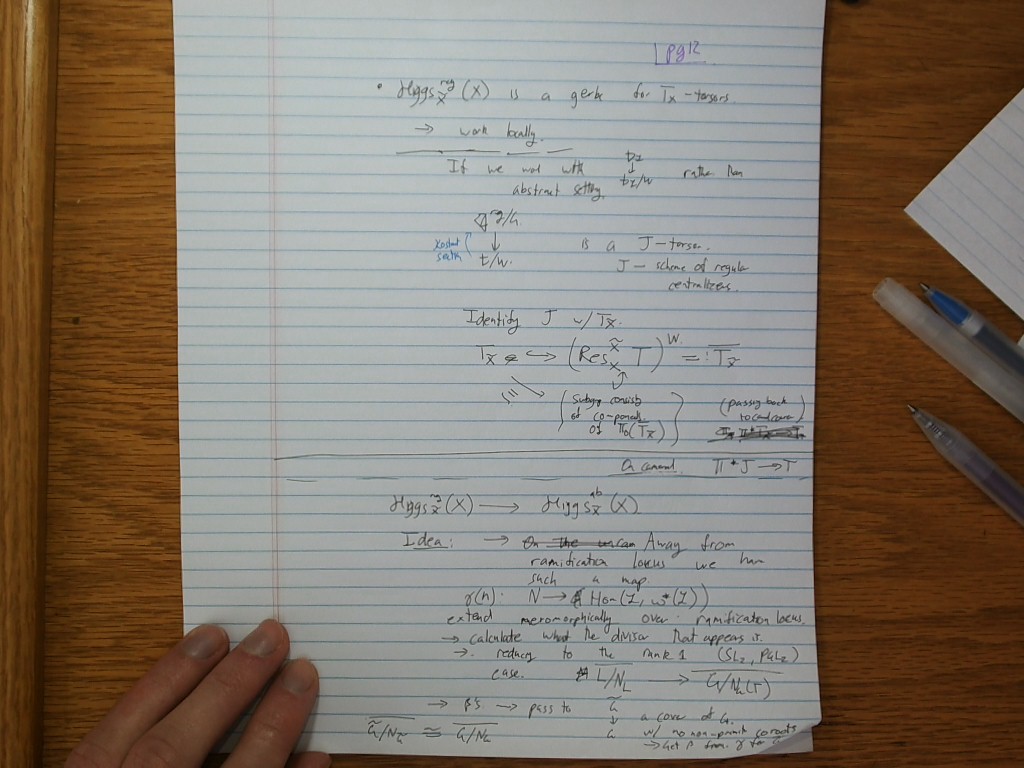 pg 12
• Higgs^{reg}_{\tilde{X}}(X) is a gerbe for T_{\tilde{X}}-torsors.
→ work locally.
If we work with t_x ↓ t_x/W rather than
abstract setting.
g^{reg}/G
Kostant section ↓ is a J-torsor.
t/W. J - scheme of regular
centralizers.
Identify J w/ T_{\tilde{X}}.
T_{\tilde{X}} ↪ (Res^{\tilde{X}}_X T)^W =: \overline{T}_{\tilde{X}}
(passing back
Subgp consists
of components
of π_0(\overline{T}_{\tilde{X}})
On cameral π*J → T
Higgs^{reg}_{\tilde{X}}(X) → Higgs^{ab}_{\tilde{X}}(X)
Idea: → Away from
ramification locus we have
such a map.
γ(n): N → Hom(L, w*(L))
extend meromorphically over ramification locus.
→ calculate what the divisor that appears is.
→ reducing to the rank 1 (SL_2, PGL_2)
case. \overline{L/N_L} → \overline{G/N_G(T)}
→ β's → pass to \tilde{G}
↓ a cover of G.
\overline{\tilde{G}/N_{\tilde{G}}} ≅ \overline{G/N_G} G w/ no non-primitive coroots
→ Get β from γ for \tilde{G}